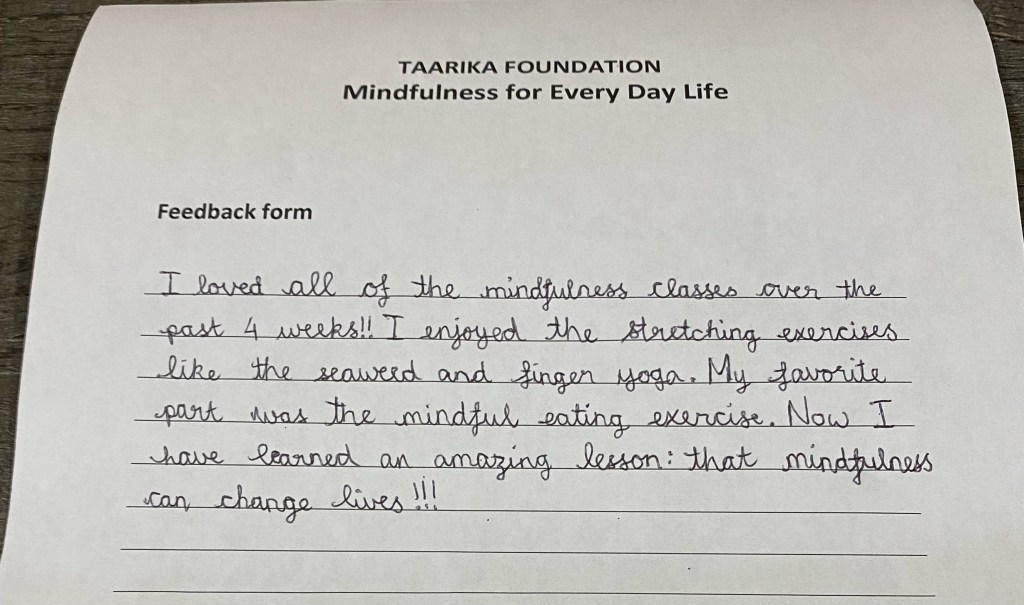 TAARIKA FOUNDATION
Mindfulness for Every Day Life
Feedback form
I loved all of the mindfulness classes over the
past 4 weeks!! I enjoyed the stretching exercises
like the seaweed and finger yoga. My favorite
part was the mindful eating exercise. Now I
have learned an amazing lesson: that mindfulness
can change lives!!!